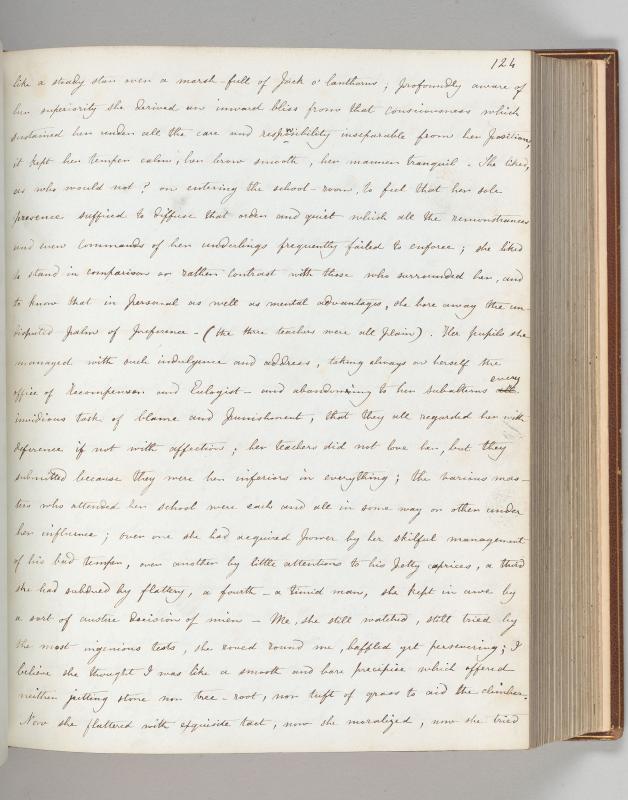 124
like a steady star over a marsh-full of Jack o' lanthorns; profoundly aware of
her superiority she derived an inward bliss from that consciousness which
sustained her under all the care and responsibility inseparable from her position,
it kept her temper calm, her brow smooth, her manner tranquil - She liked,
as who would not? on entering the school-room, to feel that her sole
presence sufficed to diffuse that order and quiet which all the remonstrances
and even commands of her underlings frequently failed to enforce; she liked
to stand in comparison or rather contrast with those who surrounded her, and
to know that in personal as well as mental advantages, she bore away the un-
disputed palm of preference - (the three teachers were all plain). Her pupils she
managed with such indulgence and address, taking always on herself the
office of Recompenser and Eulogist - and abandoning to her subalterns every
invidious task of blame and punishment, that they all regarded her with
deference if not with affection; her teachers did not love her, but they
submitted because they were her inferiors in everything; the various mas-
ters who attended her school were each and all in some way or other under
her influence; over one she had acquired power by her skilful management
of his bad temper, over another by little attentions to his petty caprices, a third
she had subdued by flattery, a fourth - a timid man, she kept in awe by
a sort of austere decision of mien - Me, she still watched, still tried by
the most ingenious tests, she roved round me, baffled yet persevering; I
believe she thought I was like a smooth and bare precipice which offered
neither jutting stone nor tree-root, nor tuft of grass to aid the climber.
Now she flattered with exquisite tact, now she moralized, now she tried